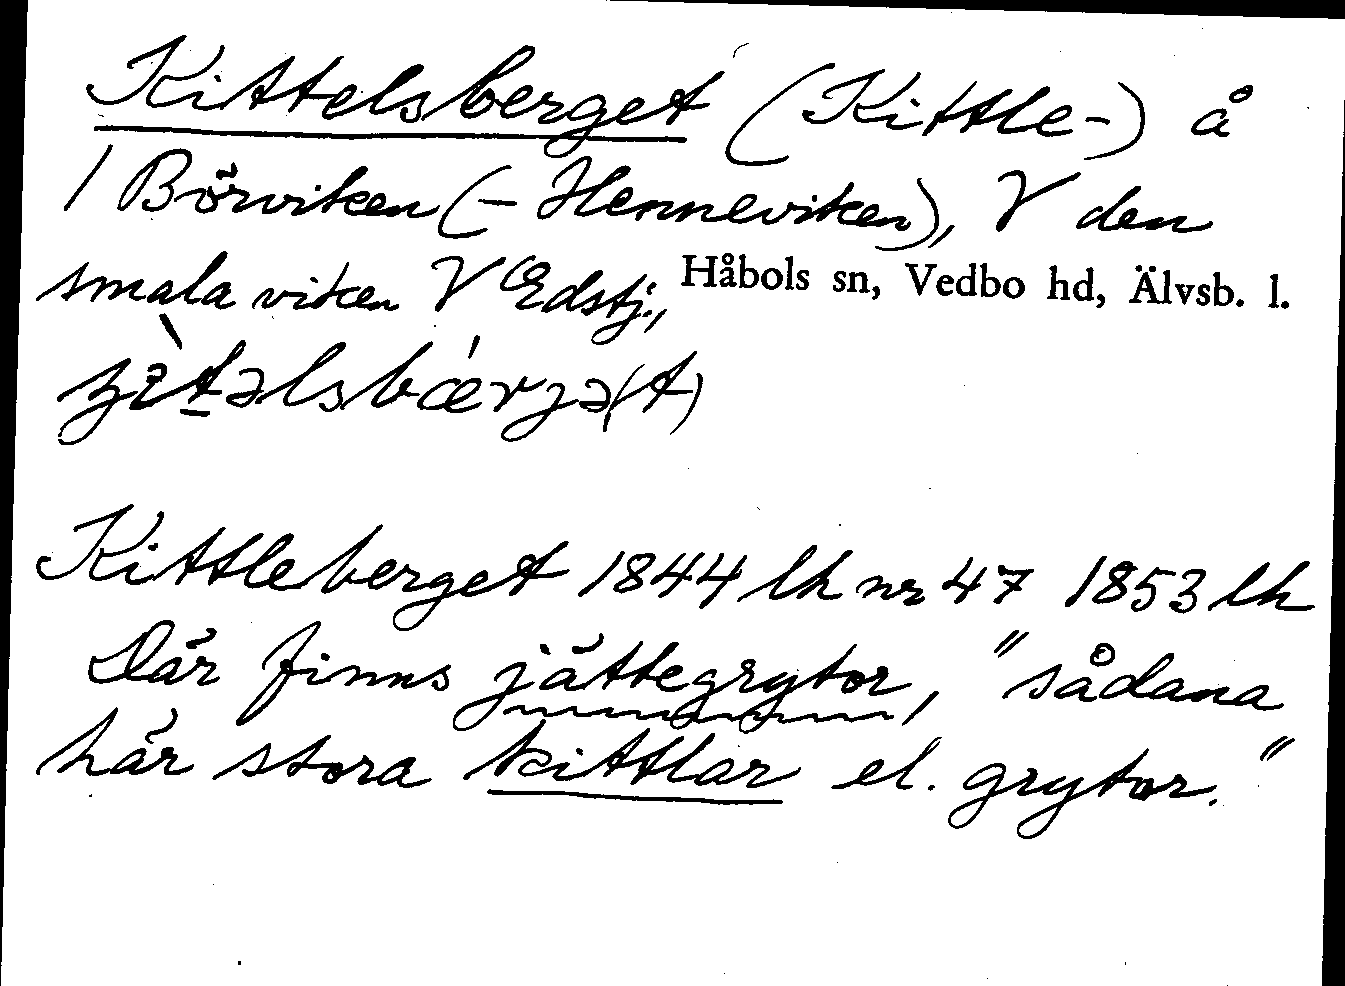 Kittelsberget (Kittle-) å
1 Börviken (- Henneviken), V den
smala viken V Edstj.,
Håbols sn, Vedbo hd, Älvsb. l.
Kittleberget 1844 lh nr 47 1853 lh
Där finns jättegrytor, "sådana
här stora kittlar el. grytor."